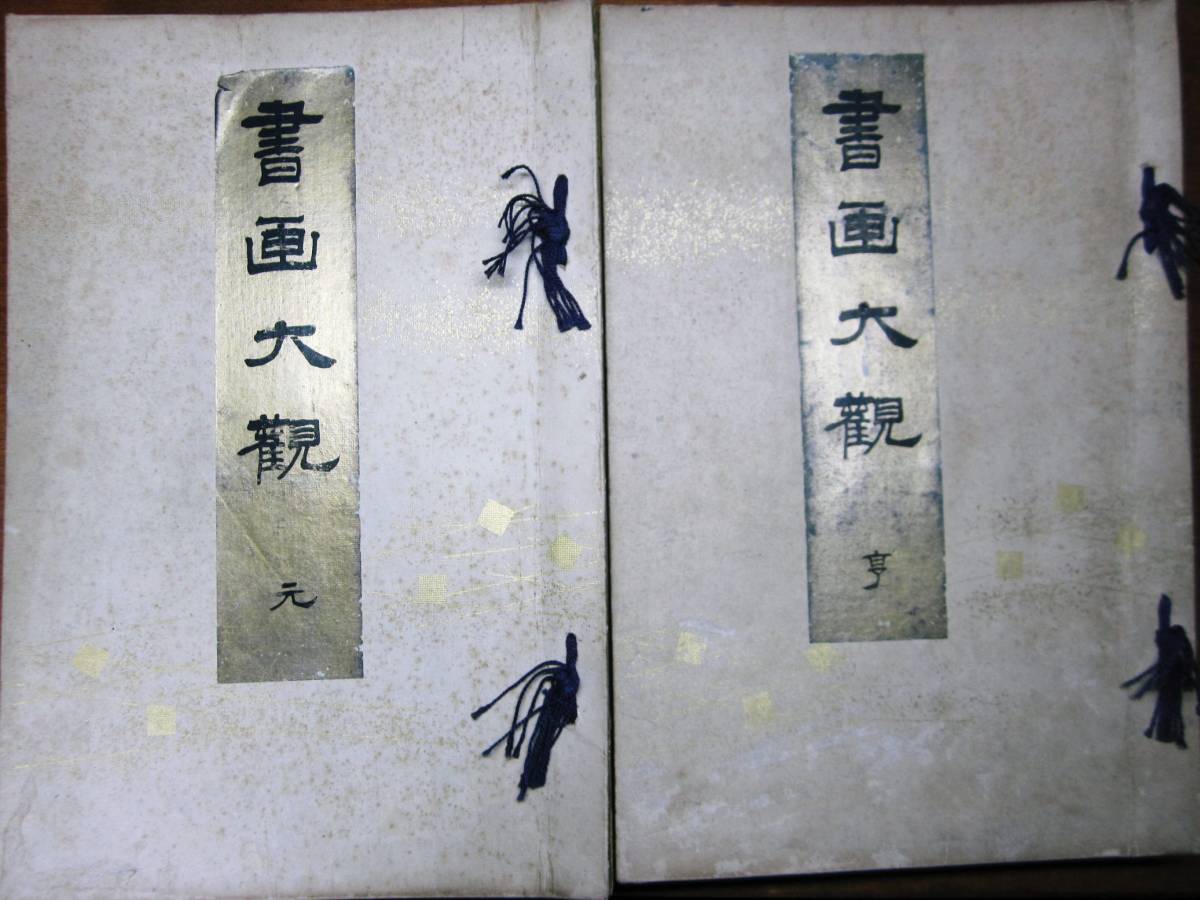 書画大觀
元
書画大觀
亨